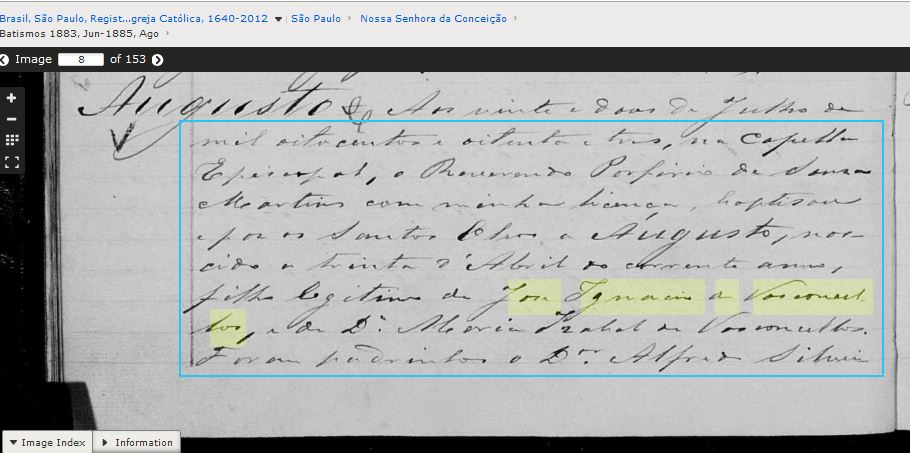 Brasil, São Paulo, Regist...greja Católica, 1640-2012 São Paulo Nossa Senhora da Conceição
Batismos 1883, Jun-1885, Ago
Image 8 of 153
Augusto Aos vinte e dous de Julho de
mil oitocentos e oitenta e tres, na Capella
Episcopal, o Reverendo Porfirio de Souza
Martins com minha licença, baptisou
e poz os Santos Oleos a Augusto, nas-
cido a trinta d'Abril do corrente anno,
filho legitimo de Jose Ignacio de Vasconcel
los, e de D. Maria Izabel de Vasconcellos.
Foram padrinhos o Dor Alfredo Silvei
Image Index Information